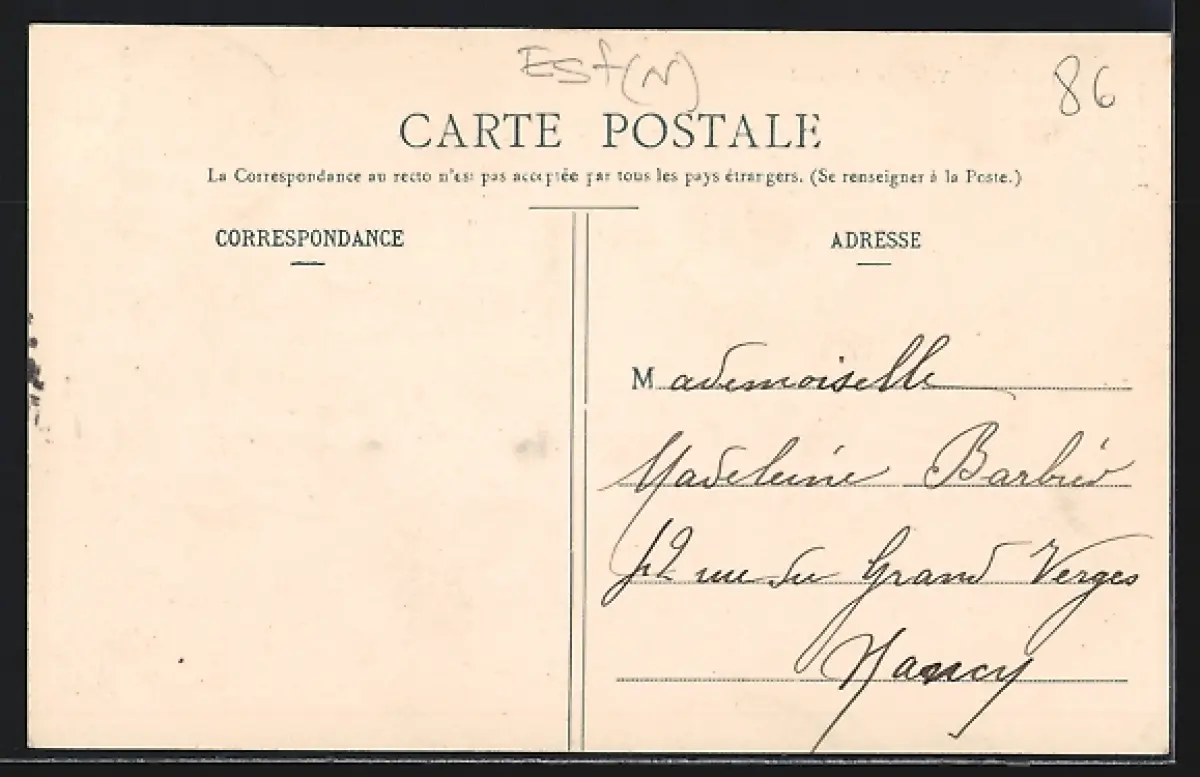 Est (N)
86
CARTE POSTALE
La Correspondance au recto n'est pas acceptée par tous les pays étrangers. (Se renseigner à la Poste.)
CORRESPONDANCE
ADRESSE
Mademoiselle
Madeleine Barbier
rue du Grand Verger
Nancy